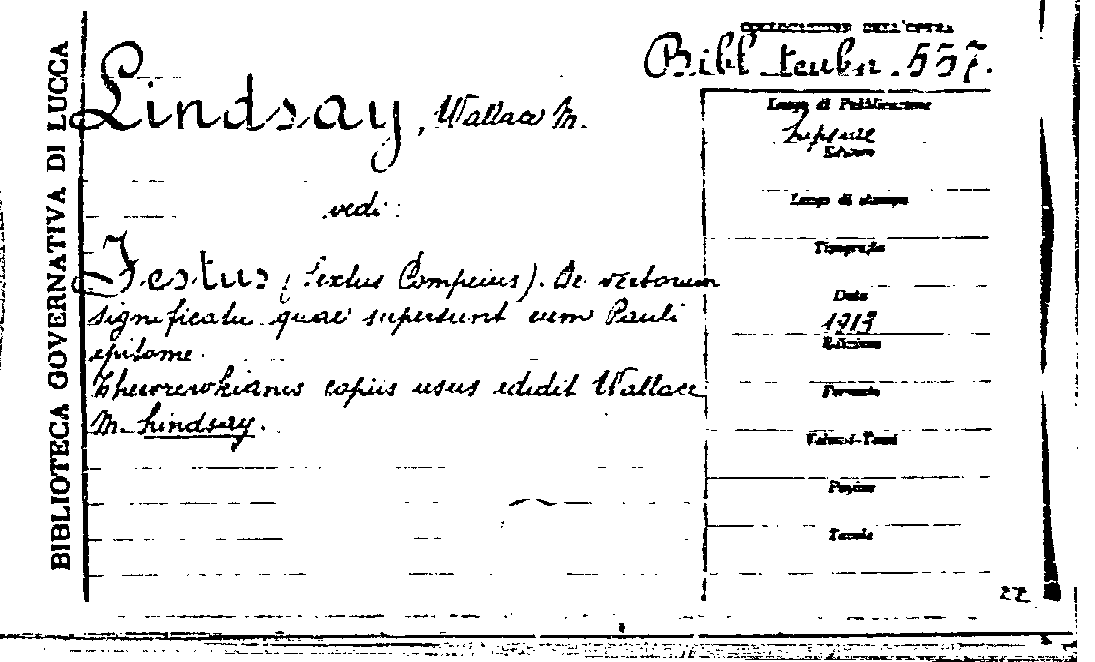 BIBLIOTECA GOVERNATIVA DI LUCCA
COLLOCAZIONE DELL'OPERA
Bibl. teubn. 557.
Lindsay, Wallace M.
vedi:
Festus (Sextus Pompeius). De verborum
significatu quae supersunt cum Pauli
epitome.
Thewrewkianis copiis usus edidit Wallace
M. Lindsay.
Luogo di Pubblicazione
Lipsiae
Editore
Luogo di stampa
Tipografia
Data
1913
Edizione
Formato
Volumi-Tomi
Pagine
Tavole